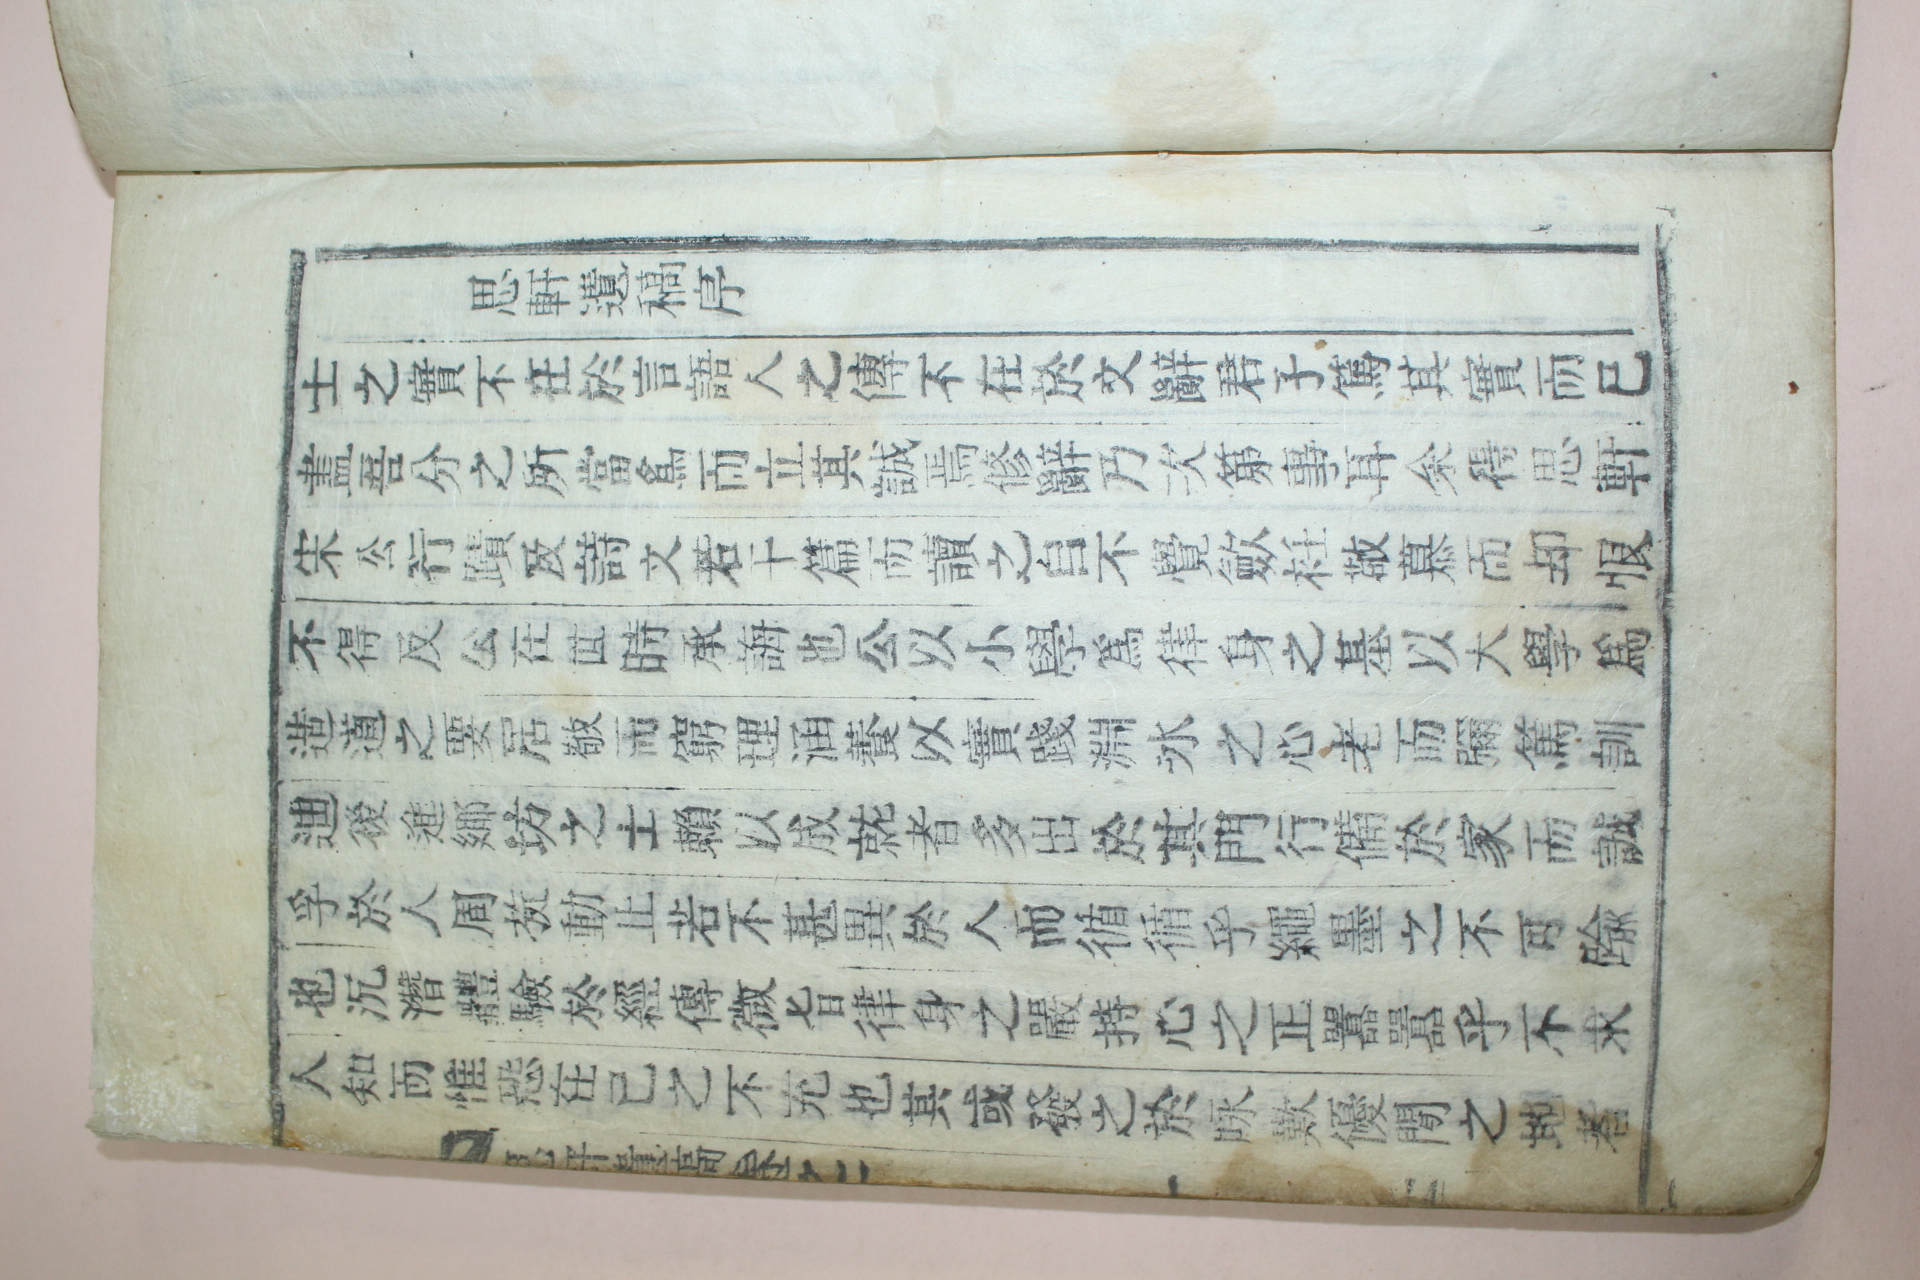 思軒遺稿序
士之實不在於言語人之傳不在於文辭君子篤其實而已
盡吾分之所當爲而立其誠焉修辭乃次第事耳余得思軒
宋公行蹟及詩文若干篇而讀之自不覺歛衽敬慕而却恨
不得及公在世時承誨也公以小學爲律身之基以大學爲
造道之要居敬而窮理涵養以實踐淵氷之心老而彌篤訓
迪後進鄕坊之士賴以成就者多出於其門行備於家而誠
孚於人周旋動止若不甚異於人而循循乎繩墨之不可踰
也沉潛體驗於經傳微旨律身之嚴持心之正囂囂乎不求
人知而惟恐在己之不充也其或發之於咏歎優閒之地者
思軒遺稿卷之一